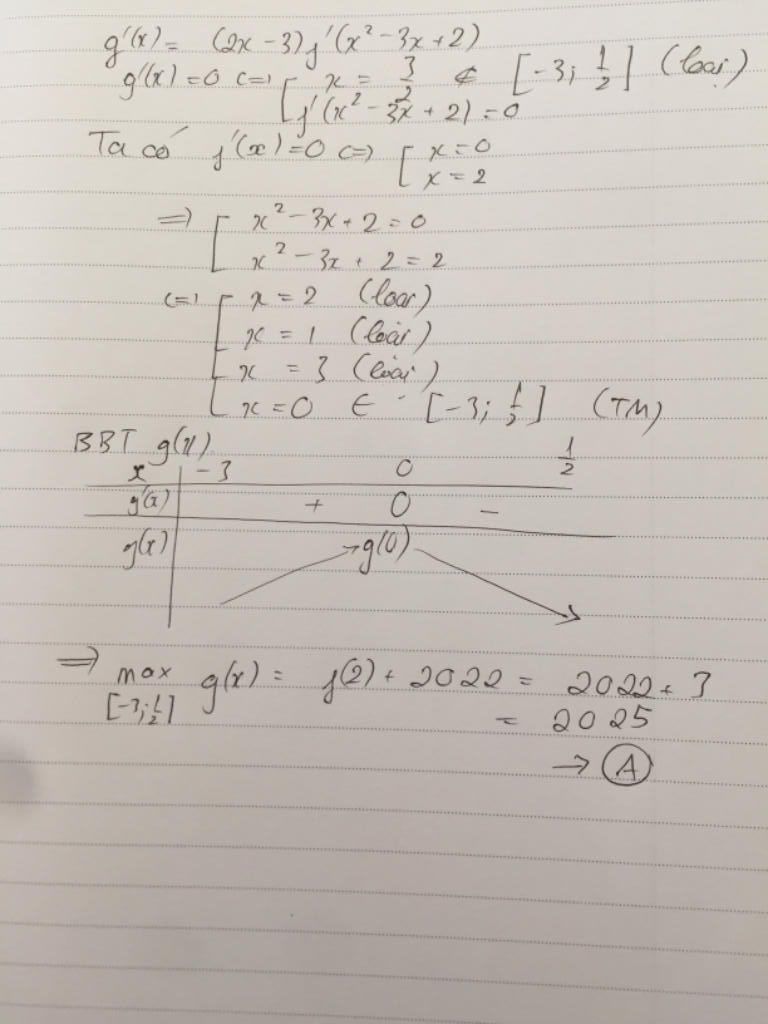 g'(x) = (2x - 3) f'(x² - 3x + 2)
g'(x) = 0 <=> [ x = 3/2 ∉ [-3; 1/2] (loại)
[ f'(x² - 3x + 2) = 0
Ta có f'(x) = 0 <=> [ x = 0
[ x = 2
=> [ x² - 3x + 2 = 0
[ x² - 3x + 2 = 2
<=> [ x = 2 (loại)
[ x = 1 (loại)
[ x = 3 (loại)
[ x = 0 ∈ [-3; 1/2] (TM)
BBT g(x)
x | -3 0 1/2
g'(x) | + 0 -
g(x) | → g(0) →
=> max g(x) = f(2) + 2022 = 2022 + 3
[-3; 1/2]
= 2025
→ A